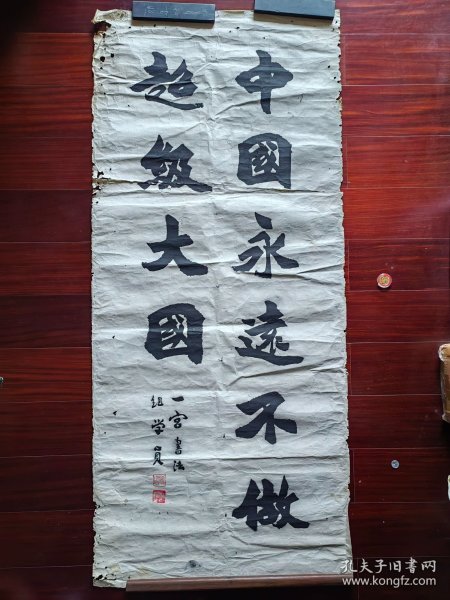 中國永遠不做
超級大國
一宫書法
組学員
孔夫子旧书网
www.kongfz.com